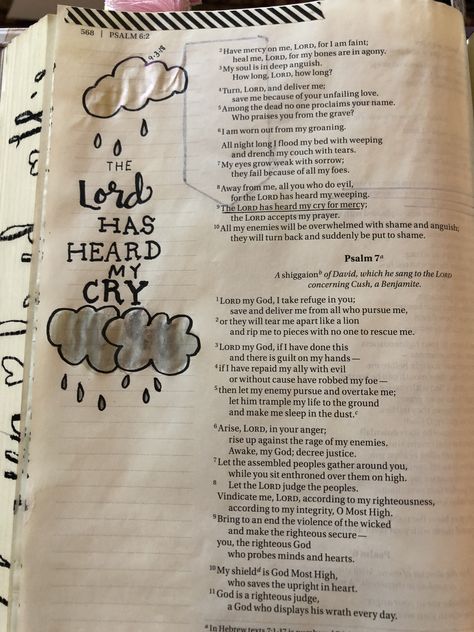 568 | PSALM 6:2
9.3.18
THE
Lord
HAS
HEARD
MY
CRY
2 Have mercy on me, LORD, for I am faint;
heal me, LORD, for my bones are in agony.
3 My soul is in deep anguish.
How long, LORD, how long?
4 Turn, LORD, and deliver me;
save me because of your unfailing love.
5 Among the dead no one proclaims your name.
Who praises you from the grave?
6 I am worn out from my groaning.
All night long I flood my bed with weeping
and drench my couch with tears.
7 My eyes grow weak with sorrow;
they fail because of all my foes.
8 Away from me, all you who do evil,
for the LORD has heard my weeping.
9 The LORD has heard my cry for mercy;
the LORD accepts my prayer.
10 All my enemies will be overwhelmed with shame and anguish;
they will turn back and suddenly be put to shame.
Psalm 7 a
A shiggaion b of David, which he sang to the LORD
concerning Cush, a Benjamite.
1 LORD my God, I take refuge in you;
save and deliver me from all who pursue me,
2 or they will tear me apart like a lion
and rip me to pieces with no one to rescue me.
3 LORD my God, if I have done this
and there is guilt on my hands —
4 if I have repaid my ally with evil
or without cause have robbed my foe —
5 then let my enemy pursue and overtake me;
let him trample my life to the ground
and make me sleep in the dust. c
6 Arise, LORD, in your anger;
rise up against the rage of my enemies.
Awake, my God; decree justice.
7 Let the assembled peoples gather around you,
while you sit enthroned over them on high.
8 Let the LORD judge the peoples.
Vindicate me, LORD, according to my righteousness,
according to my integrity, O Most High.
9 Bring to an end the violence of the wicked
and make the righteous secure —
you, the righteous God
who probes minds and hearts.
10 My shield d is God Most High,
who saves the upright in heart.
11 God is a righteous judge,
a God who displays his wrath every day.
a In Hebrew texts 7:1-17 is numbered